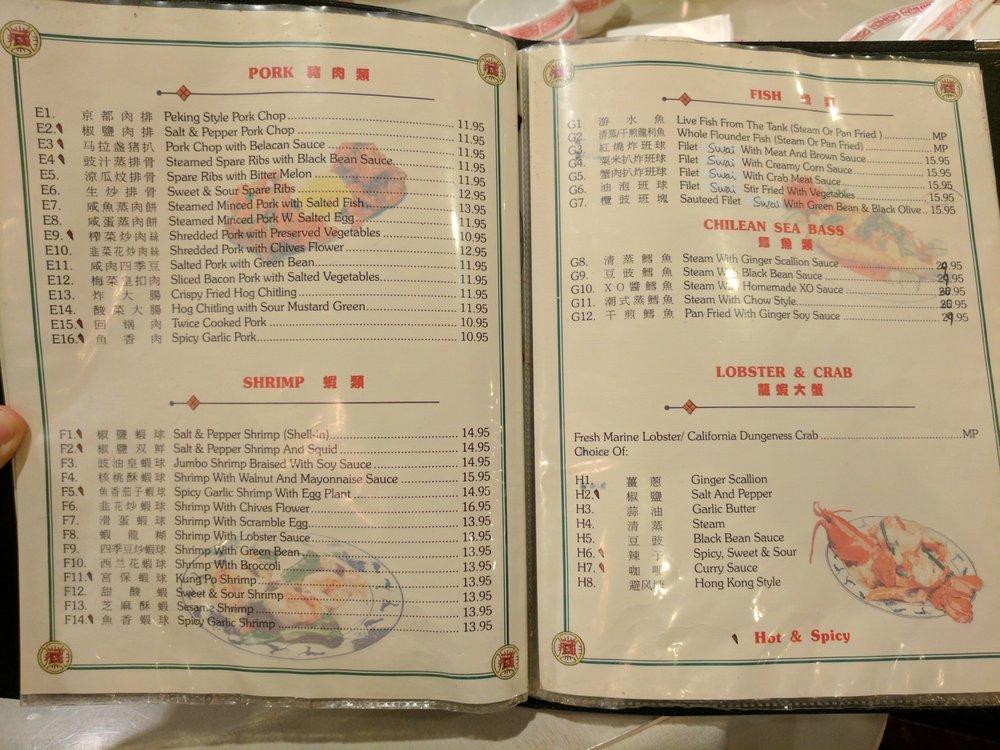 PORK 豬肉類
E1. 京都肉排 Peking Style Pork Chop 11.95
E2. 椒鹽肉排 Salt & Pepper Pork Chop 11.95
E3 马拉盏猪扒 Pork Chop with Belacan Sauce 11.95
E4 豉汁蒸排骨 Steamed Spare Ribs with Black Bean Sauce 11.95
E5. 涼瓜炆排骨 Spare Ribs with Bitter Melon 11.95
E6. 生炒排骨 Sweet & Sour Spare Ribs 12.95
E7. 咸魚蒸肉餅 Steamed Minced Pork with Salted Fish 13.95
E8. 咸蛋蒸肉餅 Steamed Minced Pork W. Salted Egg 11.95
E9. 榨菜炒肉絲 Shredded Pork with Preserved Vegetables 10.95
E10. 韭菜花炒肉絲 Shredded Pork with Chives Flower 12.95
E11. 咸肉四季豆 Salted Pork with Green Bean 11.95
E12. 梅菜皇扣肉 Sliced Bacon Pork with Salted Vegetables 11.95
E13. 炸大腸 Crispy Fried Hog Chitling 11.95
E14. 酸菜大腸 Hog Chitling with Sour Mustard Green 11.95
E15. 回锅肉 Twice Cooked Pork 10.95
E16. 魚香肉 Spicy Garlic Pork 10.95
SHRIMP 蝦類
F1. 椒鹽蝦球 Salt & Pepper Shrimp (Shell-in) 14.95
F2. 椒鹽双鮮 Salt & Pepper Shrimp And Squid 14.95
F3. 豉油皇蝦球 Jumbo Shrimp Braised With Soy Sauce 14.95
F4. 核桃酥蝦球 Shrimp With Walnut And Mayonnaise Sauce 15.95
F5. 魚香茄子蝦球 Spicy Garlic Shrimp With Egg Plant 14.95
F6. 韭花炒蝦球 Shrimp With Chives Flower 16.95
F7. 滑蛋蝦球 Shrimp With Scramble Egg 13.95
F8. 蝦龍糊 Shrimp With Lobster Sauce 13.95
F9. 四季豆炒蝦球 Shrimp With Green Bean 13.95
F10. 西兰花蝦球 Shrimp With Broccoli 13.95
F11. 宮保蝦球 Kung Po Shrimp 13.95
F12. 甜酸蝦 Sweet & Sour Shrimp 13.95
F13. 芝麻酥蝦 Sesame Shrimp 13.95
F14. 魚香蝦球 Spicy Garlic Shrimp 13.95
FISH 魚類
G1 游水魚 Live Fish From The Tank (Steam Or Pan Fried ) MP
G2. 清蒸/干煎龍利魚 Whole Flounder Fish (Steam Or Pan Fried) MP
G3. 紅燒炸班球 Filet Swai With Meat And Brown Sauce 15.95
G4. 粟米扒炸班球 Filet Swai With Creamy Corn Sauce 15.95
G5. 蟹肉扒炸班球 Filet Swai With Crab Meat Sauce 15.95
G6. 油泡班球 Filet Swai Stir Fried With Vegetables 15.95
G7. 欖豉班塊 Sauteed Filet Swai With Green Bean & Black Olive 15.95
CHILEAN SEA BASS
鱈魚類
G8. 清蒸鱈魚 Steam With Ginger Scallion Sauce 29.95
G9. 豆豉鱈魚 Steam With Black Bean Sauce 29.95
G10. XO醬鱈魚 Steam With Homemade XO Sauce .95
G11. 潮式蒸鱈魚 Steam With Chow Style .95
G12. 干煎鱈魚 Pan Fried With Ginger Soy Sauce 29.95
LOBSTER & CRAB
龍蝦大蟹
Fresh Marine Lobster/ California Dungeness Crab MP
Choice Of:
H1. 薑蔥 Ginger Scallion
H2. 椒鹽 Salt And Pepper
H3. 蒜油 Garlic Butter
H4. 清蒸 Steam
H5. 豆豉 Black Bean Sauce
H6. 辣子 Spicy, Sweet & Sour
H7. 咖喱 Curry Sauce
H8. 避风塘 Hong Kong Style
Hot & Spicy